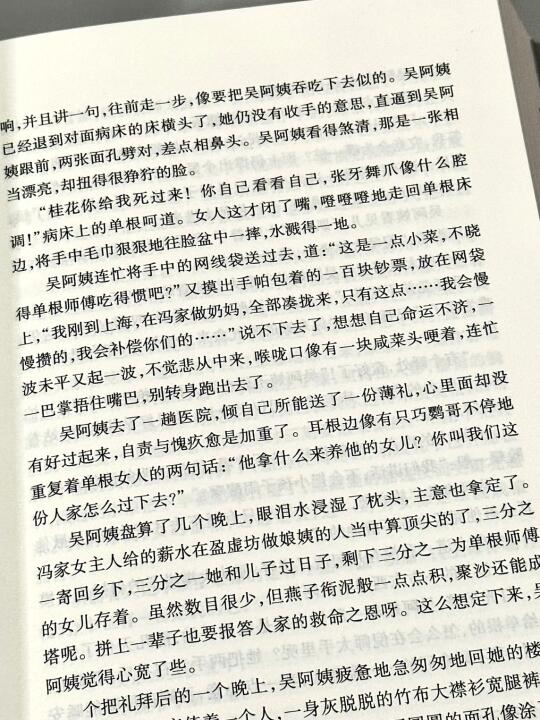 响,并且讲一句,往前走一步,像要把吴阿姨吞吃下去似的。吴阿姨
已经退到对面病床的床横头了,她仍没有收手的意思,直逼到吴阿
姨跟前,两张面孔劈对,差点相鼻头。吴阿姨看得煞清,那是一张相
当漂亮,却扭得很狰狞的脸。
“桂花你给我死过来!你自己看看自己,张牙舞爪像什么腔
调!”病床上的单根呵道。女人这才闭了嘴,噔噔噔地走回单根床
边,将手中毛巾狠狠地往脸盆中一摔,水溅得一地。
吴阿姨连忙将手中的网线袋送过去,道:“这是一点小菜,不晓
得单根师傅吃得惯吧?”又摸出手帕包着的一百块钞票,放在网袋
上,“我刚到上海,在冯家做奶妈,全部凑拢来,只有这点……我会慢
慢攒的,我会补偿你们的……”说不下去了,想想自己命运不济,一
波未平又起一波,不觉悲从中来,喉咙口像有一块咸菜头哽着,连忙
一巴掌捂住嘴巴,别转身跑出去了。
吴阿姨去了一趟医院,倾自己所能送了一份薄礼,心里面却没
有好过起来,自责与愧疚愈是加重了。耳根边像有只巧鹦哥不停地
重复着单根女人的两句话:“他拿什么来养他的女儿?你叫我们这
份人家怎么过下去?”
吴阿姨盘算了几个晚上,眼泪水浸湿了枕头,主意也拿定了。
冯家女主人给的薪水在盈虚坊做娘姨的人当中算顶尖的了,三分之
一寄回乡下,三分之一她和儿子过日子,剩下三分之一为单根师傅
的女儿存着。虽然数目很少,但燕子衔泥般一点点积,聚沙还能成
塔呢。拼上一辈子也要报答人家的救命之恩呀。这么想定下来,吴
阿姨觉得心宽了些。
一个把礼拜后的一个晚上,吴阿姨疲惫地急匆匆地回她的楼
着一个人,一身灰脱脱的竹布大襟衫宽腿裤
圆圆的面孔像涂